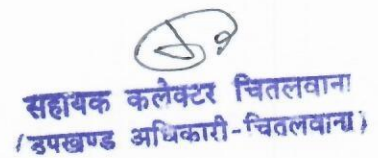 सहायक कलेक्टर चितलवाना
(उपखण्ड अधिकारी-चितलवाना)